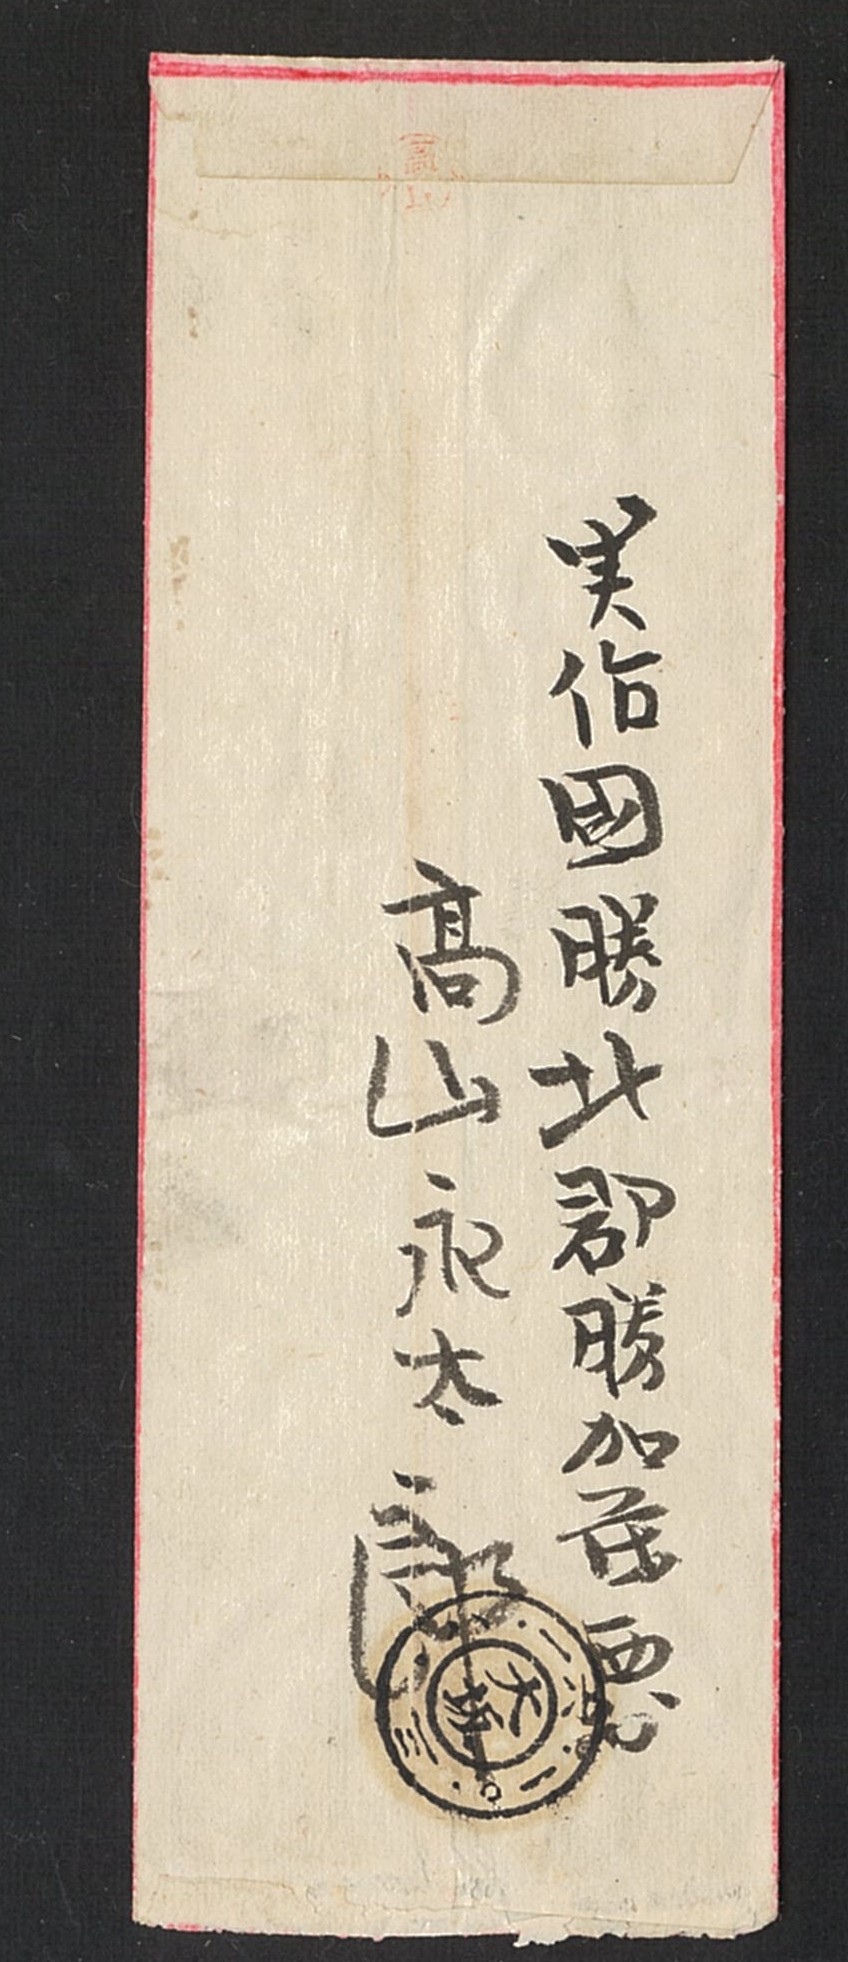 美作國勝北郡勝加茂西
高山永太郎
大坂